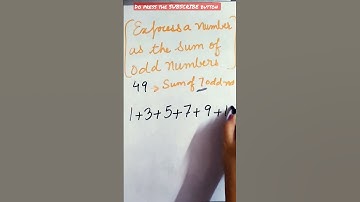 DO PRESS THE SUBSCRIBE BUTTON
Express a Number
as the Sum of
odd Numbers
49 → Sum of 7 odd no
1+3+5+7+9+1